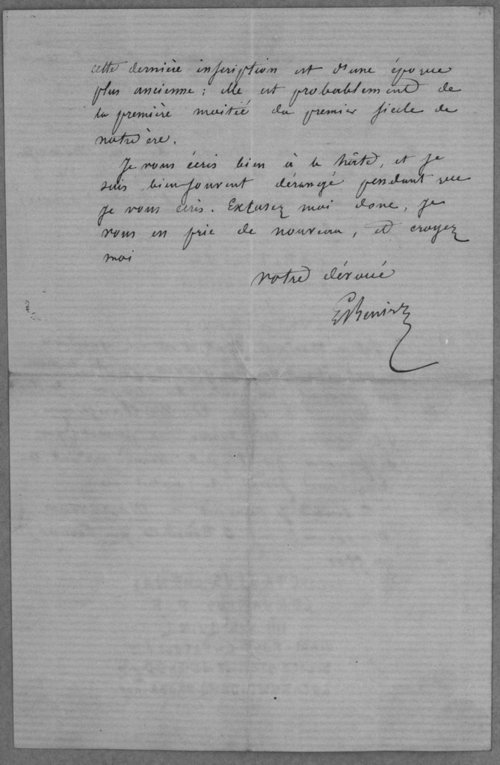 cette dernière inscription est d'une époque
plus ancienne ; elle est probablement de
la première moitié du premier siècle de
notre ère.
Je vous écris bien à la hâte, et je
suis bien souvent dérangé pendant que
je vous écris. Excusez moi donc, je
vous en prie de nouveau, et croyez
moi
votre dévoué